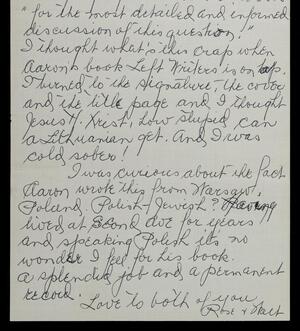 "for the most detailed and informed
discussion of this question."
I thought what's this crap when
Aaron's book Left Writers is on tap.
I turned to the signature, the cover
and the title page and I thought
Jesus H. Xrist, how stupid can
a Lithuanian get. And I was
cold sober!
I was curious about the fact
Aaron wrote this from Warsaw,
Poland. Polish-Jewish? Having
lived at Second ave for years
and speaking Polish it's no
wonder I feel for his book.
a splendid job and a permanent
record.
Love to both of you
Rose &